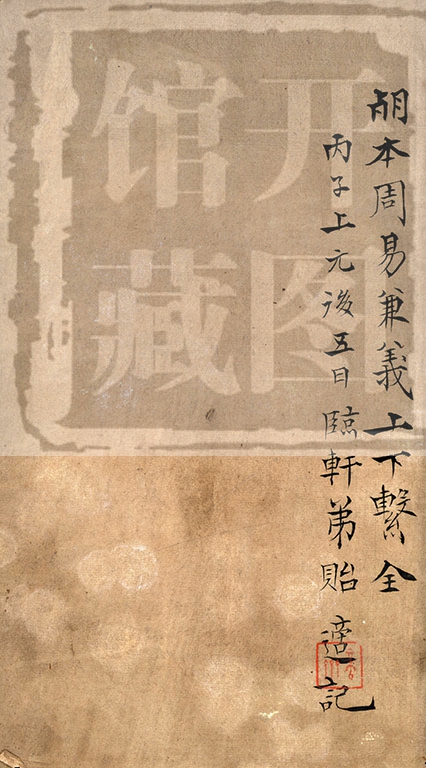 胡本周易兼義上下繫全
丙子上元後五日臨軒弟貽適記
开图
馆藏